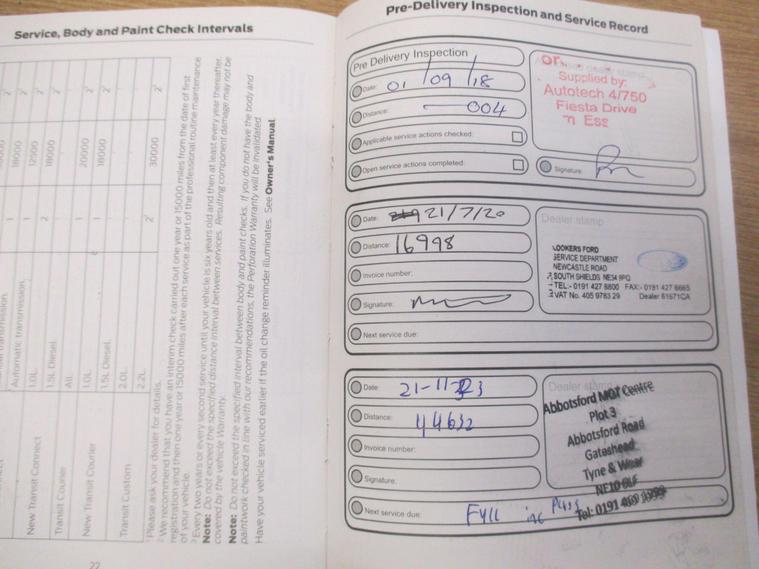 Service, Body and Paint Check Intervals
18000
2¹
Automatic transmission.
1
12500
1.0L
1
18000
New Transit Connect
1.5L Diesel.
2
Transit Courier
All.
20000
1.0L
1
New Transit Courier
1.5L Diesel.
1
18000
2.0L
Transit Custom
2.2L
2¹
30000
Please ask your dealer for details.
We recommend that you have an interim check carried out one year or 15000 miles from the date of first
registration and then one year or 15000 miles after each service as part of the professional routine maintenance
of your vehicle.
Every two years or every second service until your vehicle is six years old and then at least every year thereafter.
Note: Do not exceed the specified distance interval between services. Resulting component damage may not be
covered by the vehicle Warranty.
Note: Do not exceed the specified interval between body and paint checks. If you do not have the body and
paintwork checked in line with our recommendations, the Perforation Warranty will be invalidated.
Have your vehicle serviced earlier if the oil change reminder illuminates. See Owner's Manual.
22
Pre-Delivery Inspection and Service Record
Pre Delivery Inspection
Date: 01/09/18
Distance: 004
Applicable service actions checked:
Open service actions completed:
Supplied by:
Autotech 4/750
Fiesta Drive
Ess
Signature:
Date: 21/7/20
Distance: 16998
Invoice number:
Signature:
Next service due:
Dealer stamp
LOOKERS FORD
SERVICE DEPARTMENT
NEWCASTLE ROAD
SOUTH SHIELDS NE34 9PQ
TEL:- 0191 427 8800 FAX:- 0191 427 6665
VAT No. 405 9783 29 Dealer 61671CA
Date: 21-11-23
Distance: 44632
Invoice number:
Signature:
Next service due: Full inc Plugs
Dealer stamp
Abbotsford MOT Centre
Plot 3
Abbotsford Road
Gateshead
Tyne & Wear
Tel: 0191 469 9999